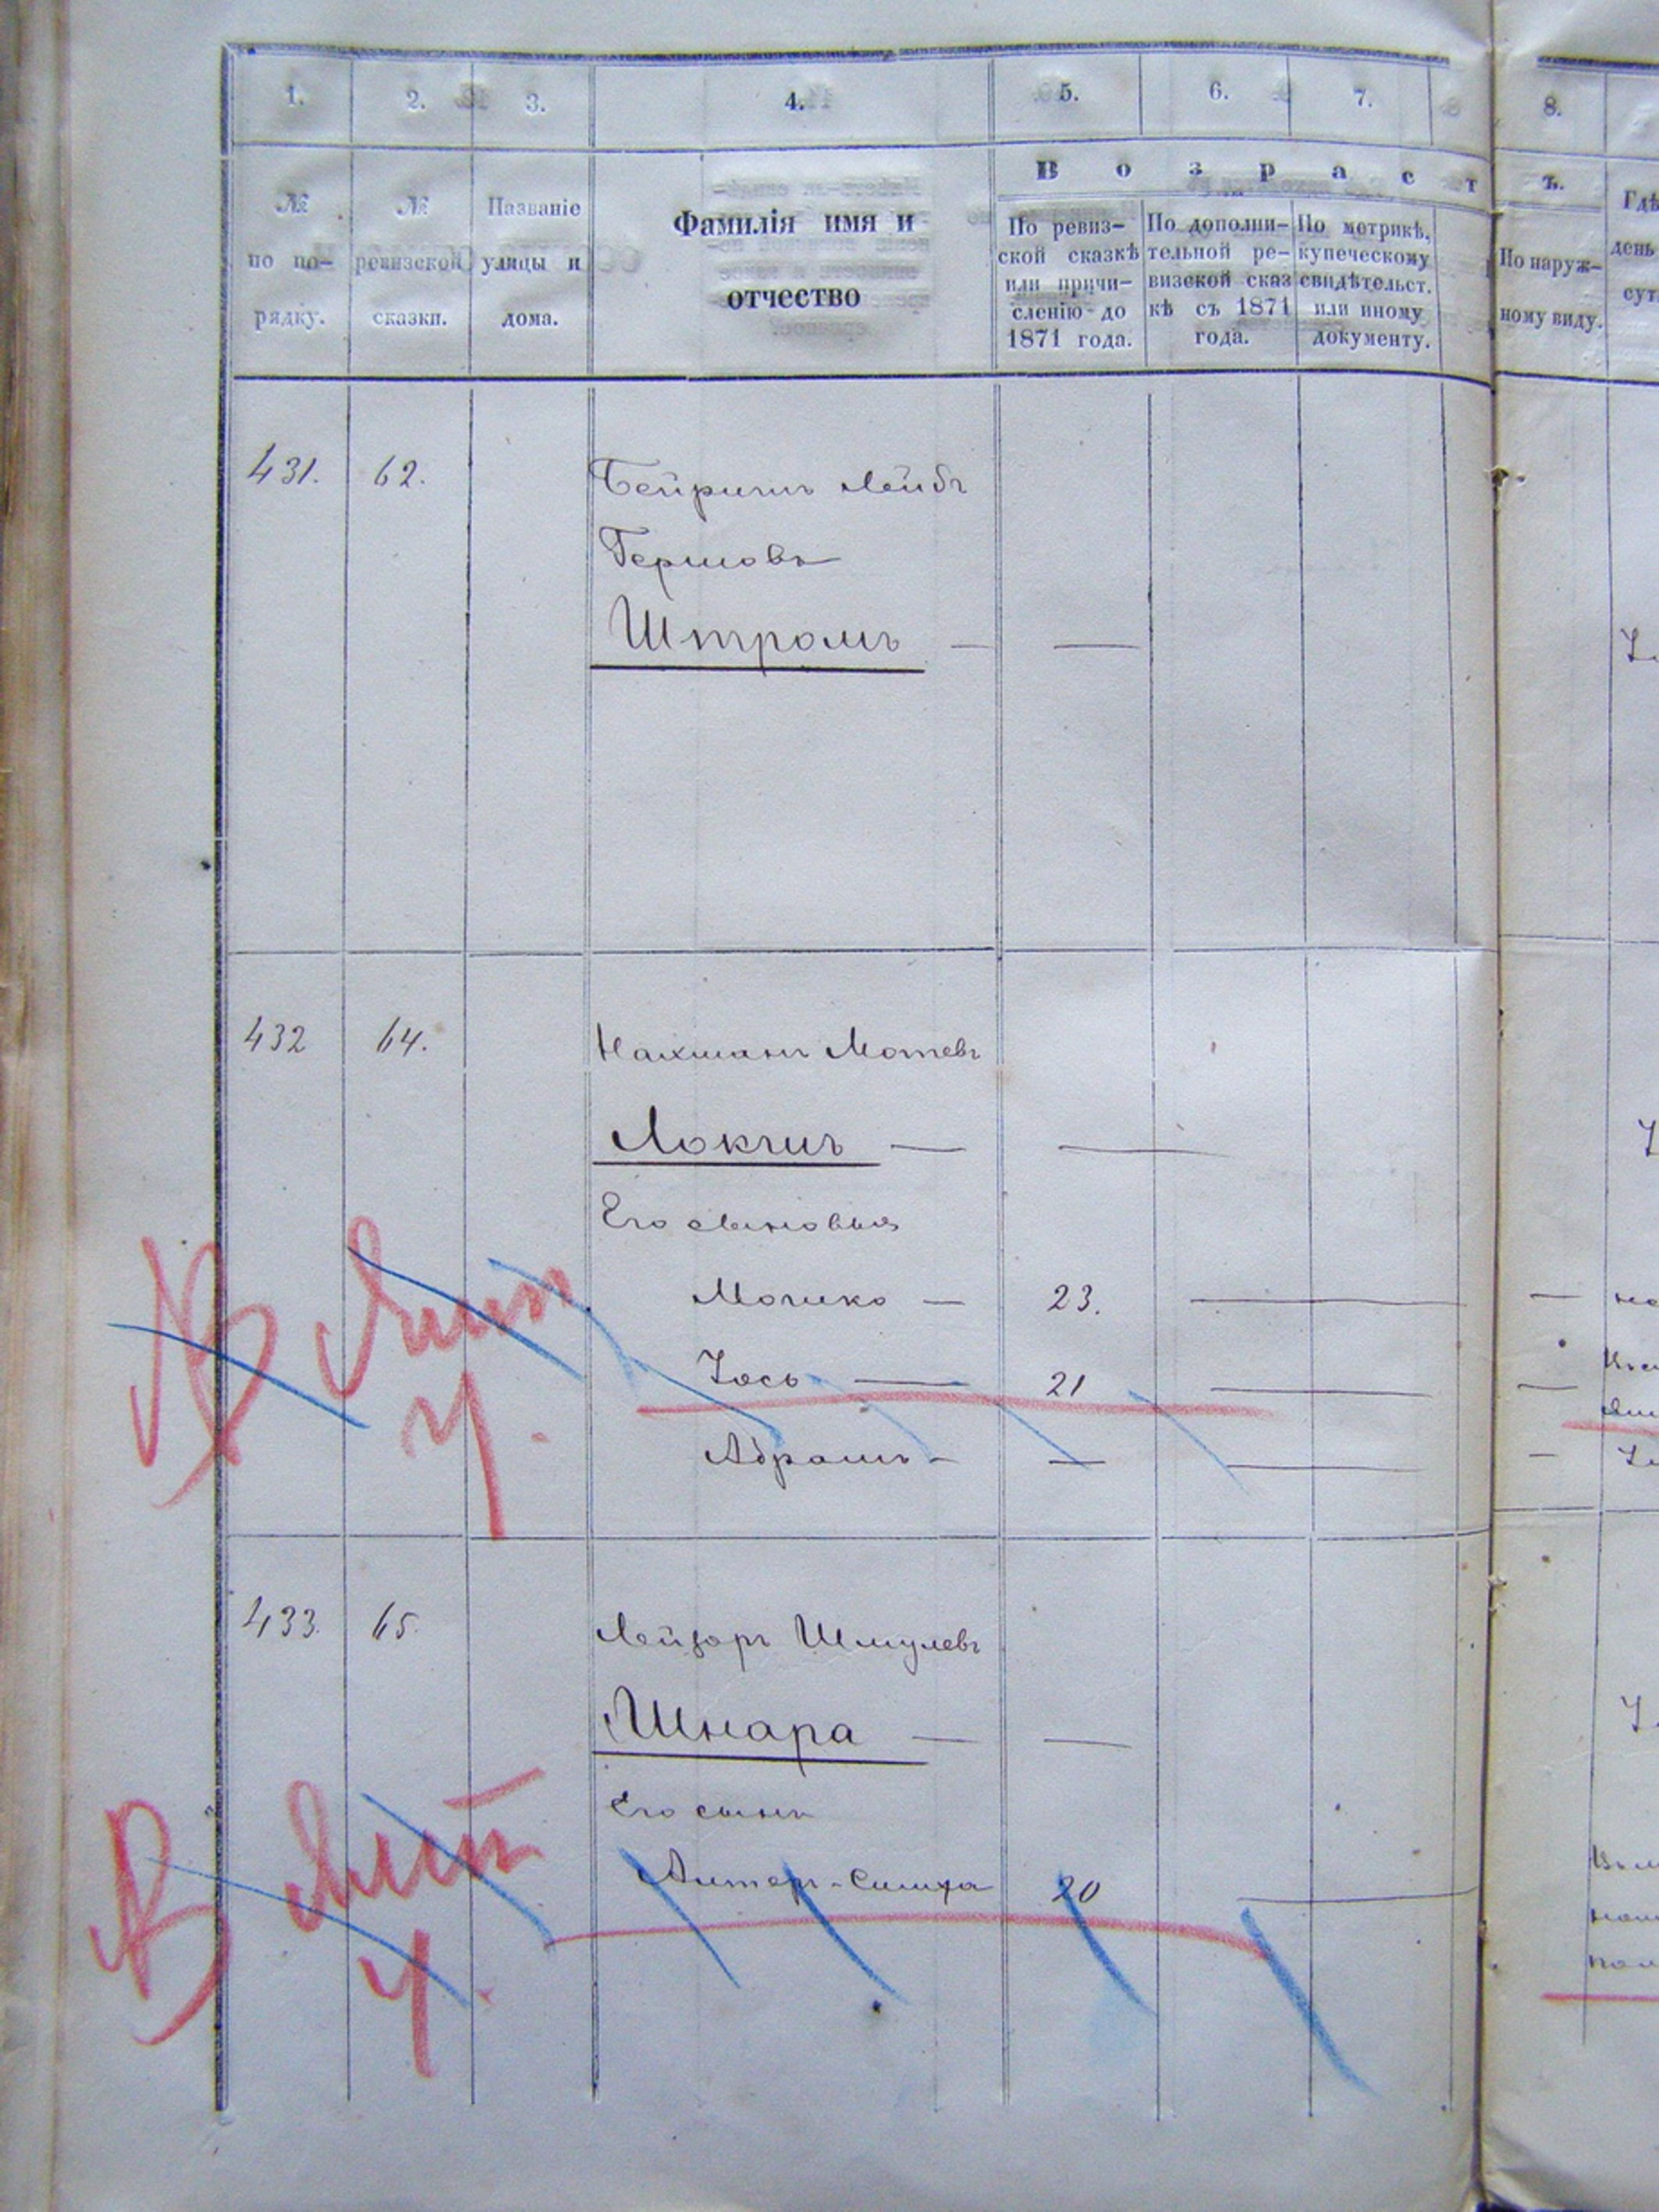 1. 2. 3. 4. 5. 6. 7. 8.
№ по по-рядку.
№ ревизской сказки.
Названіе улицы и дома.
Фамилія имя и
отчество
Возраст
ъ.
По ревиз-
ской сказкѣ
или причи-
сленію до
1871 года.
По дополни-
тельной ре-
визской сказ
кѣ съ 1871
года.
По метрикѣ,
купеческому
свидѣтельст.
или иному
документу.
По наруж-
ному виду.
Гдѣ
день
431. 62. Бейришъ Лейбъ
Гершовъ
Штромъ — —
432 64. Нахманъ Мотевъ
Локшъ — —
Его сыновья
Мошко — 23. —
Іось — 21 —
Абрамъ — — —
433. 65. Лейзоръ Шмулевъ
Шнара — —
Его сынъ
Алтеръ-Симха 20 —